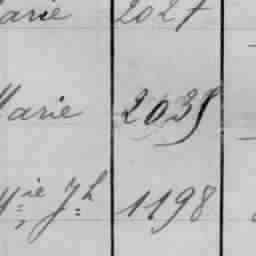 arie 2027
Marie 2035
Mie Jh 1198